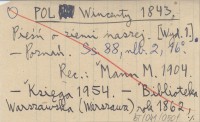 POL Wincenty 1843.
Pieśń o ziemi naszej. [Wyd. 1.]
- Poznań. Ss 88, nlb. 2, 16°
Rec.: Mann M. 1904.
- Księga 1954. - Biblioteka
Warszawska (Warszawa) rok 1862,